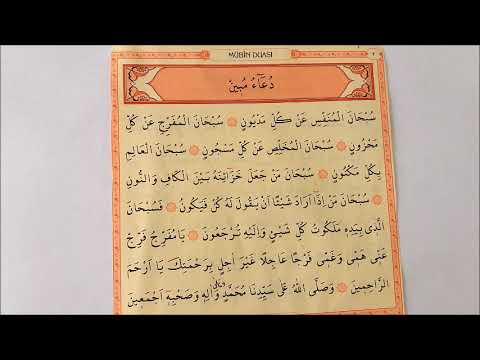 MÜBİN DUASI
٢
دُعَاۤءُ مُبِينْ
سُبْحَانَ الْمُنَفِّسِ عَنْ كُلِّ مَدْيُونٍ سُبْحَانَ الْمُفَرِّجِ عَنْ كُلِّ
مَحْزُونٍ سُبْحَانَ الْمُخَلِّصِ عَنْ كُلِّ مَسْجُونٍ سُبْحَانَ الْعَالِمِ
بِكُلِّ مَكْنُونٍ سُبْحَانَ مَنْ جَعَلَ خَزَائِنَهُ بَيْنَ الْكَافِ وَالنُّونِ
سُبْحَانَ مَنْ اِذَٓا اَرَادَ شَيْئًا اَنْ يَقُولَ لَهُ كُنْ فَيَكُونُ فَسُبْحَانَ
الَّذِى بِيَدِهِ مَلَكُوتُ كُلِّ شَيْئٍ وَاِلَيْهِ تُرْجَعُونَ يَا مُفَرِّجُ فَرِّجْ
عَنِّى هَمِّى وَغَمِّى فَرَجًا عَاجِلًا غَيْرَ اٰجِلٍ بِرَحْمَتِكَ يَا اَرْحَمَ
الرَّاحِمِينَ وَصَلَّى اللهُ عَلٰى سَيِّدِنَا مُحَمَّدٍ وَاٰلِهِ وَصَحْبِهِ اَجْمَعِينَ